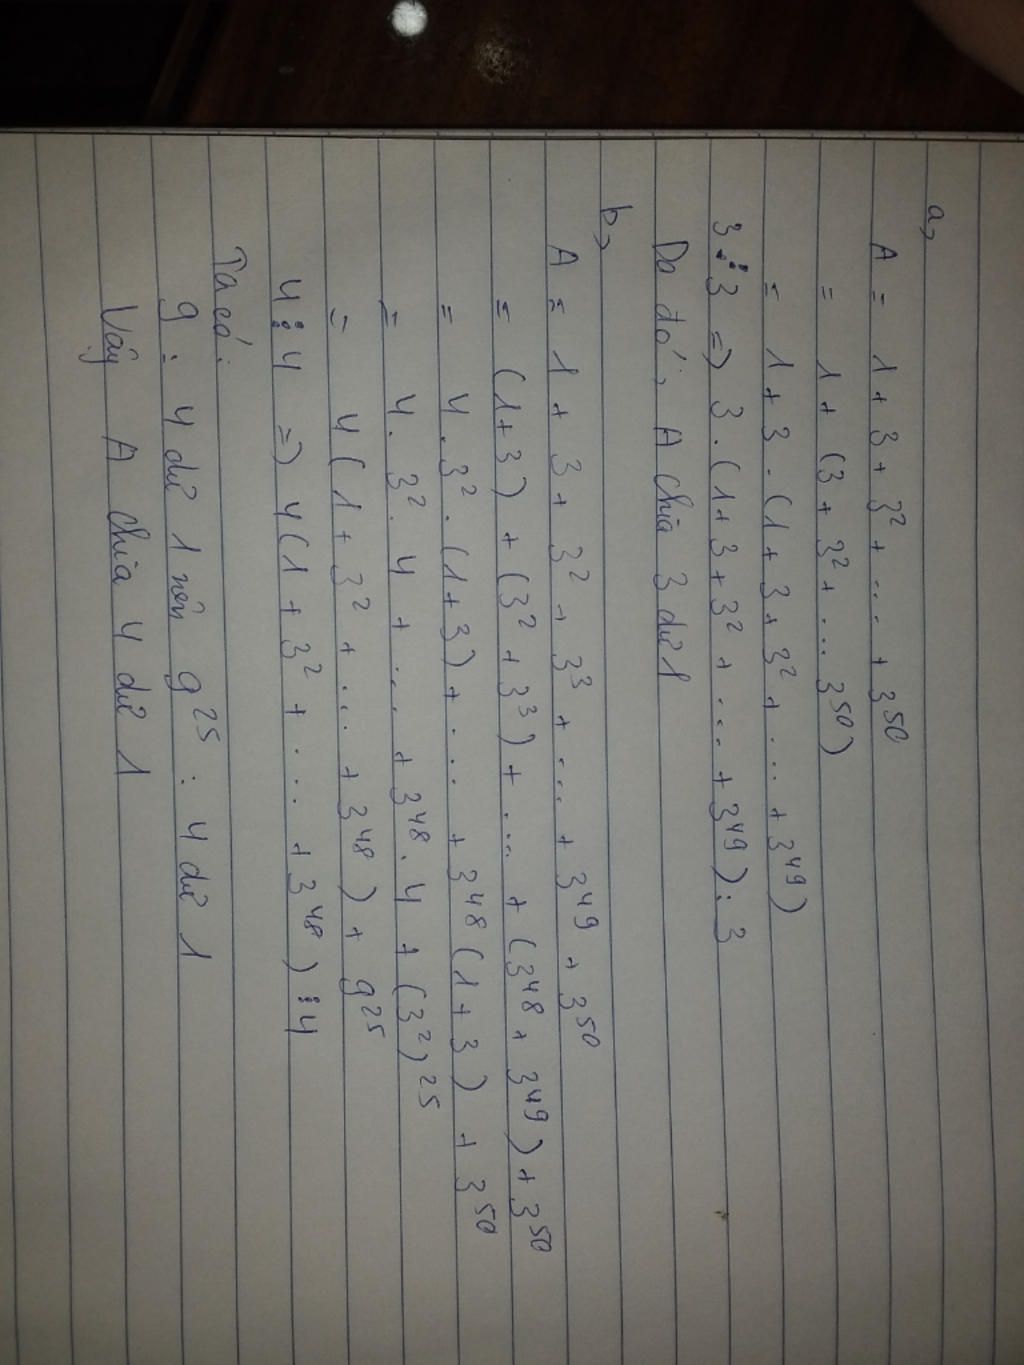 a,
A = 1 + 3 + 3² + ... + 3⁵⁰
= 1 + (3 + 3² + ... 3⁵⁰)
= 1 + 3 . (1 + 3 + 3² + ... + 3⁴⁹)
3 ⋮ 3 => 3 . (1 + 3 + 3² + ... + 3⁴⁹) : 3
Do đó, A chia 3 dư 1
b,
A = 1 + 3 + 3² + 3³ + ... + 3⁴⁹ + 3⁵⁰
= (1+3) + (3² + 3³) + ... + (3⁴⁸ + 3⁴⁹) + 3⁵⁰
= 4 . 3² . (1+3) + ... + 3⁴⁸ (1 + 3) + 3⁵⁰
= 4 . 3² . 4 + ... + 3⁴⁸ . 4 + (3²)²⁵
= 4 (1 + 3² + ... + 3⁴⁸) + 9²⁵
4 ⋮ 4 => 4 (1 + 3² + ... + 3⁴⁸) ⋮ 4
Ta có:
9 : 4 dư 1 nên 9²⁵ : 4 dư 1
Vậy A chia 4 dư 1